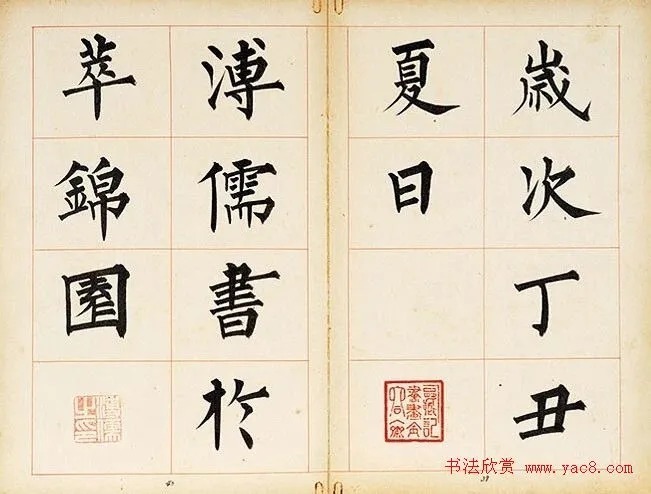 歲次丁丑
夏日
溥儒書於
萃錦園
书法欣赏 www.yac8.com